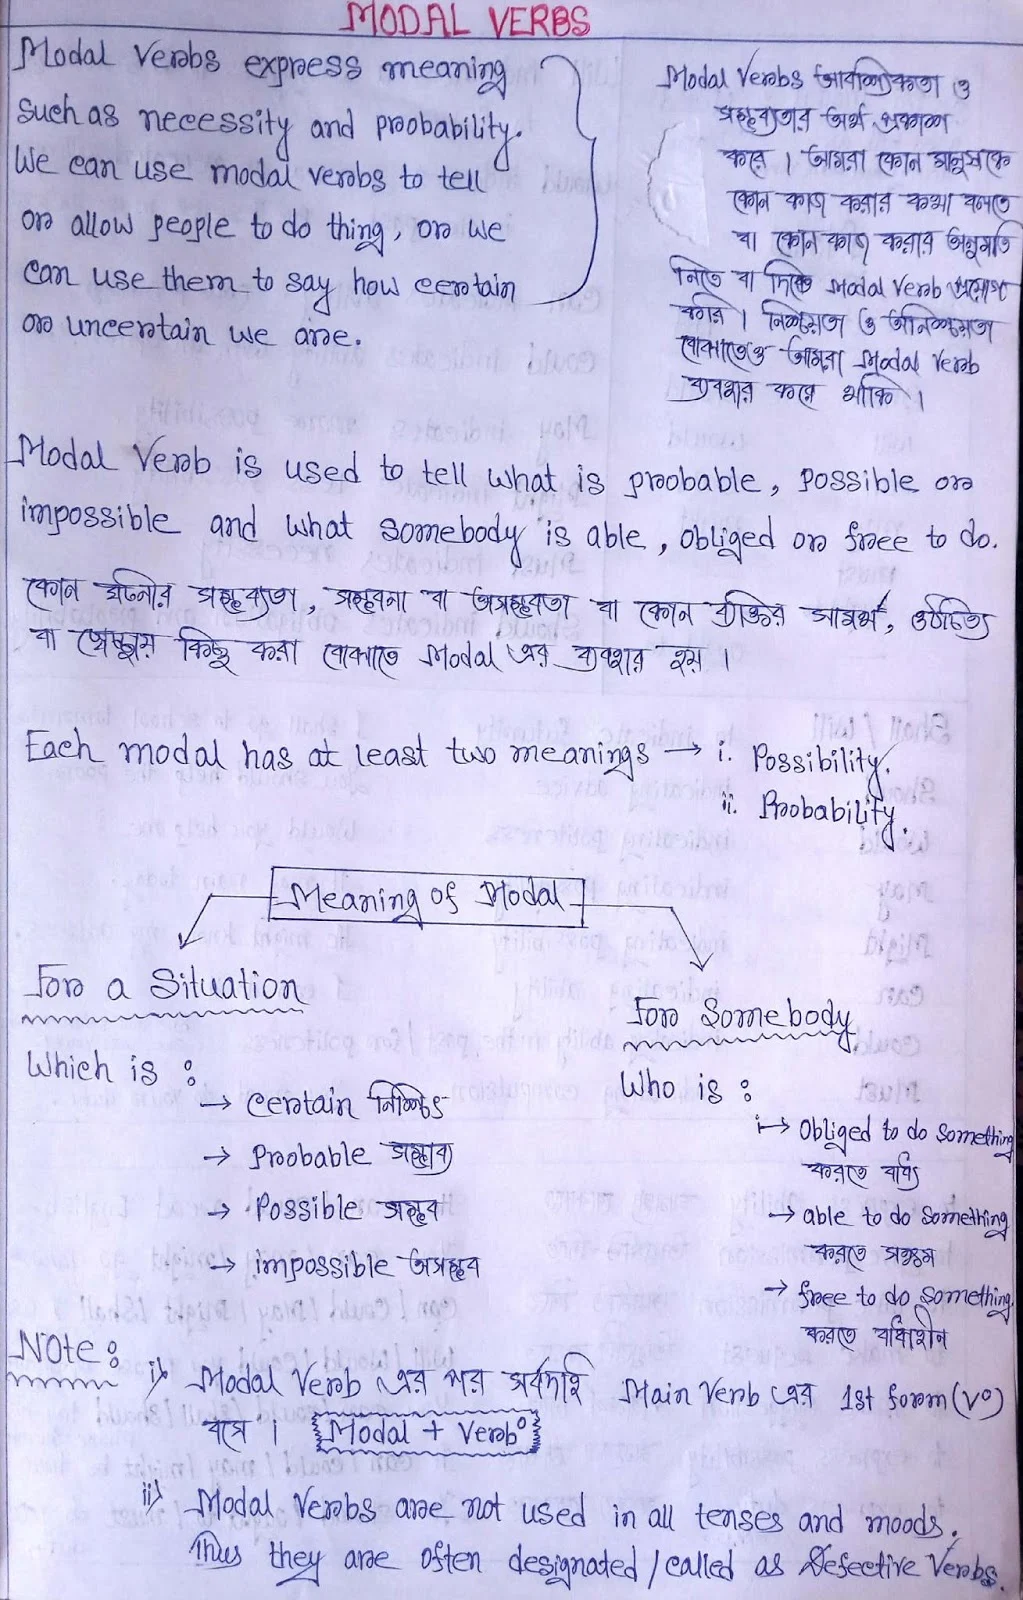 MODAL VERBS
Modal Verbs express meaning
such as necessity and probability.
We can use modal verbs to tell
or allow people to do thing, or we
can use them to say how certain
or uncertain we are.
Modal Verbs আবশ্যিকতা ও
সম্ভব্যতার অর্থ প্রকাশ
করে। আমরা কোন মানুষকে
কোন কাজ করার কথা বলতে
বা কোন কাজ করার অনুমতি
নিতে বা দিতে Modal Verb প্রয়োগ
করি। নিশ্চয়তা ও অনিশ্চয়তা
বোঝাতেও আমরা Modal Verb
ব্যবহার করে থাকি।
Modal Verb is used to tell what is probable, possible or
impossible and what somebody is able, obliged or free to do.
কোন ঘটনার সম্ভব্যতা, সম্ভবনা বা অসম্ভবতা বা কোন ব্যক্তির সামর্থ, ঔচিত্য
বা স্বেচ্ছায় কিছু করা বোঝাতে Modal এর ব্যবহার হয়।
Each modal has at least two meanings → i. Possibility.
ii. Probability.
Meaning of Modal
For a Situation
Which is :
→ certain নিশ্চিত
→ Probable সম্ভাব্য
→ Possible সম্ভব
→ impossible অসম্ভব
For Somebody
Who is :
→ obliged to do something
করতে বাধ্য
→ able to do something
করতে সক্ষম
→ free to do something.
করতে
Note :
i) Modal Verb এর পর সর্বদাই Main Verb এর 1st form (V°)
বসে। Modal + Verb°
ii) Modal Verbs are not used in all tenses and moods.
Thus they are often designated / called as Defective Verbs.